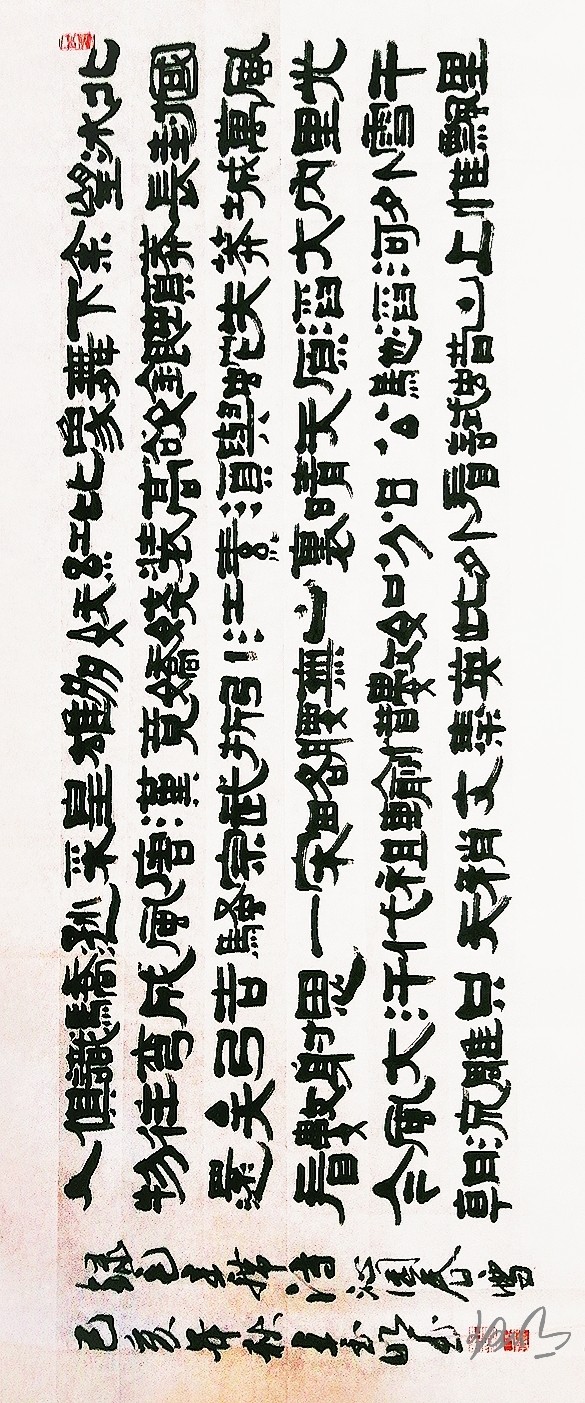 北國風光千里
冰封萬里雪飄
望長城內外惟
余莽莽大河上
下頓失滔滔山
舞銀蛇原馳蜡
象欲與天公試
比高須晴日看
紅裝素裹分外
妖嬈江山如此
多嬌引無數英
雄競折腰惜秦
皇漢武略輸文
采唐宗宋祖稍
遜風騷一代天
驕成吉思汗只
識彎弓射大雕
俱往矣數風流
人物還看今朝
錄毛主席詩沁園春雪
己亥年秋